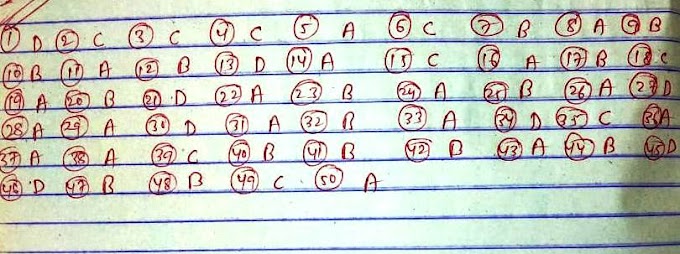 1 D 2 C 3 C 4 C 5 A 6 C 7 B 8 A 9 B
10 B 11 A 12 B 13 D 14 A 15 C 16 A 17 B 18 C
19 A 20 B 21 D 22 A 23 B 24 A 25 B 26 A 27 D
28 A 29 A 30 D 31 A 32 B 33 A 34 D 35 C 36 A
37 A 38 A 39 C 40 B 41 B 42 B 43 A 44 B 45 D
46 D 47 B 48 B 49 C 50 A